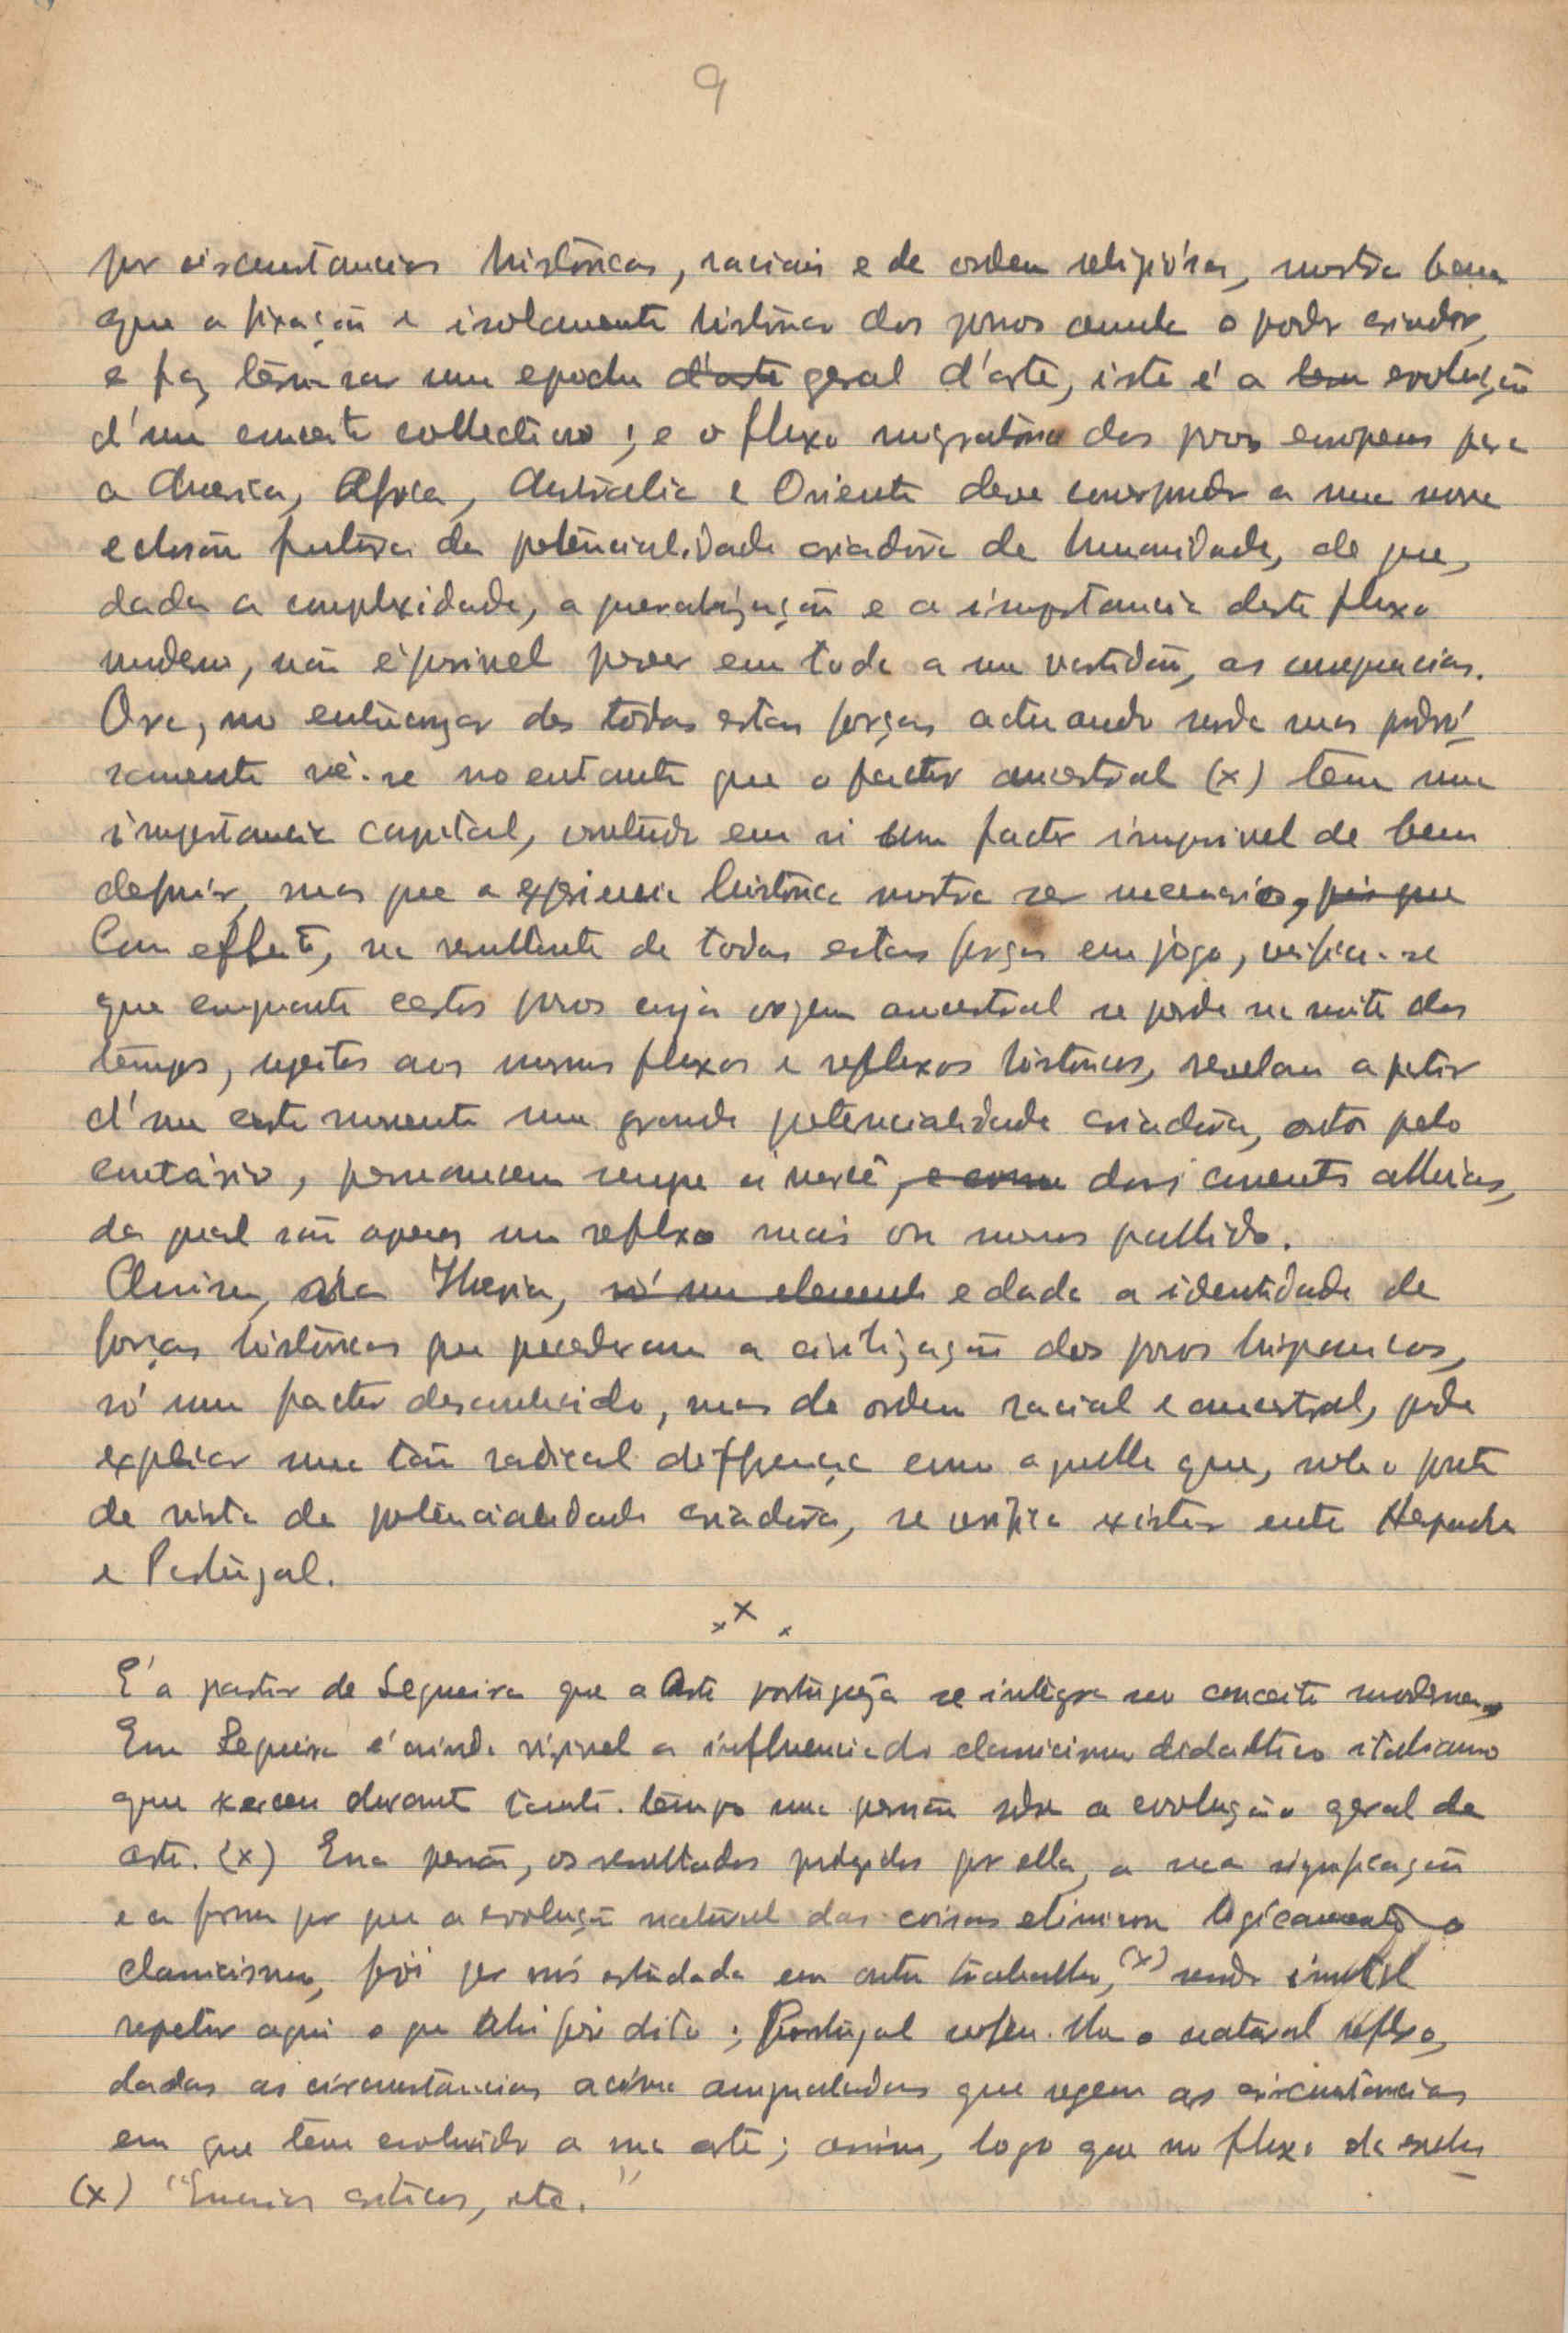 9
por circumstancias históricas, raciais e de ordem religiósa, mostra bem
que a fixação e isolamento histórico dos povos annula o poder criador,
e faz terminar uma epocha d'arte geral d'arte, isto é a evolução
d'um conceito collectivo; e o fluxo migratório dos povos europeus para
a America, Africa, Australia e Oriente deve corresponder a uma nova
eclosão futura da potencialidade criadora da humanidade, de que,
dada a complexidade, a generalização e a importancia deste fluxo
moderno, não é possivel prever em toda a sua vastidão, as consequencias.
Ora, no entrançar de todas estas forças actuando poderó-
samente vê-se no entanto que o factor ancestral (x) tem uma
importancia capital, contendo em si um factor impossivel de bem
definir, mas que a experiencia histórica mostra ser necessario, pois que
Com effeito, na resultante de todas estas forças em jogo, verifica-se
que emquanto certos povos cuja origem ancestral se perde na noite dos
tempos, sujeitos aos mesmos fluxos e refluxos históricos, revelam a partir
d'um certo momento uma grande potencialidade criadora, outros pelo
contrário, permanecem sempre á mercê, e como das correntes alheias,
da qual são apenas um reflexo mais ou menos pallido.
Assim, na Iberia, só um elemento e dada a identidade de
forças históricas que precederam a civilização dos povos hispanicos,
só um factor desconhecido, mas de ordem racial e ancestral, pode
explicar uma tão radical differença como aquella que, sob o ponto
de vista da potencialidade criadora, se verifica existir entre Hespanha
e Portugal.
x x x
É a partir de Sequeira que a Arte portugueza se integra no conceito moderno.
Em Sequeira é ainda visivel a influencia do classicismo didactico italiano
que exerceu durante tanto tempo uma pressão sobre a evolução geral da
arte. (x) Essa pressão, os resultados produzidos por ella, a sua significação
e a forma por que a evolução natural das coisas eliminou logicamente o
classicismo, foi por nós estudada em outro trabalho, (x) sendo inutil
repetir aqui o que alli foi dito; Portugal sofreu-lhe o natural reflexo,
dadas as circumstancias acima que regem as circunstancias
em que tem evoluido a sua arte; assim, logo que no fluxo da
(x) "Ensaios criticos, etc."